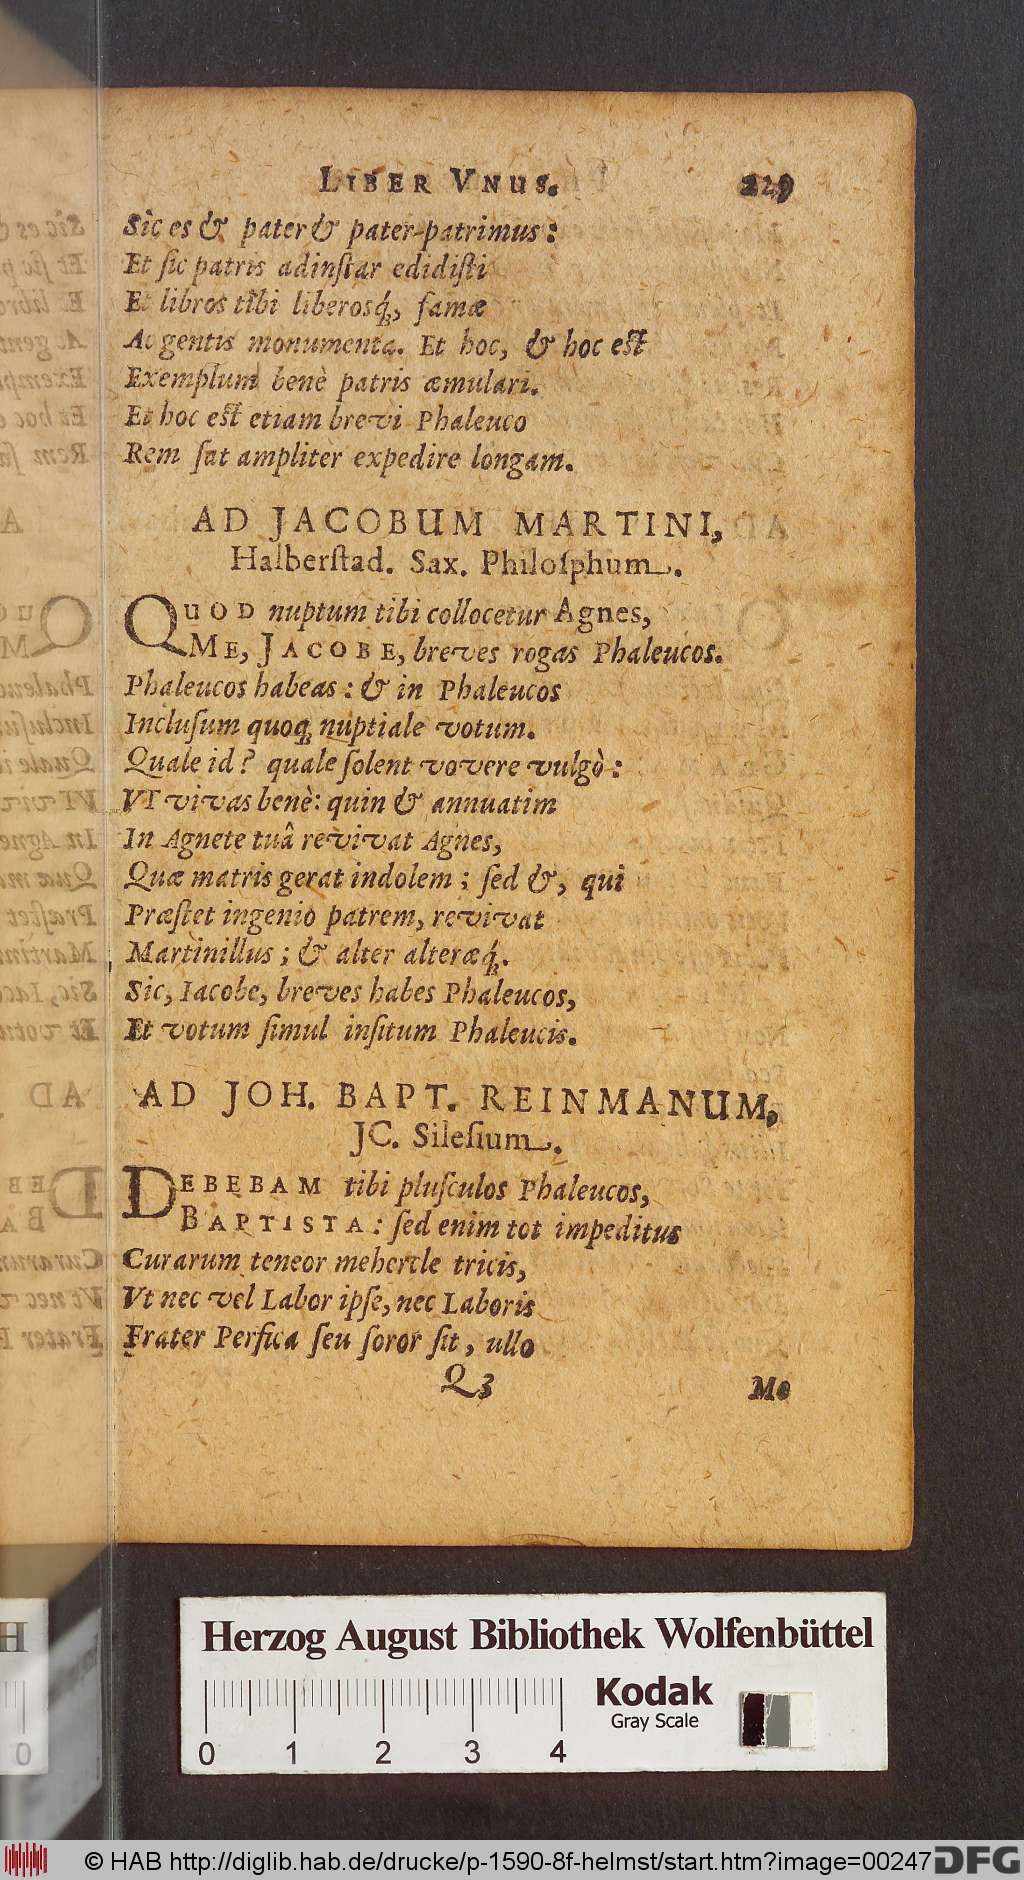 LIBER VNUS. 229
Sic es & pater & pater patrimus:
Et ſic patris adinſtar edidiſti
Et libros tibi liberosq́;, famæ
Ac gentis monumenta. Et hoc, & hoc eſt
Exemplum benè patris æmulari.
Et hoc eſt etiam brevi Phaleuco
Rem ſat ampliter expedire longam.
AD JACOBUM MARTINI,
Halberſtad. Sax. Philoſphum.
QUOD nuptum tibi collocetur Agnes,
ME, JACOBE, breves rogas Phaleucos.
Phaleucos habeas: & in Phaleucos
Incluſum quoq; nuptiale votum.
Quale id? quale ſolent vovere vulgò:
VT vivas benè: quin & annuatim
In Agnete tuâ revivat Agnes,
Quæ matris gerat indolem; ſed &, qui
Præſtet ingenio patrem, revivat
Martinillus; & alter alteræq́;.
Sic, Iacobe, breves habes Phaleucos,
Et votum ſimul inſitum Phaleucis.
AD JOH. BAPT. REINMANUM,
JC. Sileſium.
DEBEBAM tibi pluſculos Phaleucos,
BAPTISTA: ſed enim tot impeditus
Curarum teneor mehercle tricis,
Vt nec vel Labor ipſe, nec Laboris
Frater Perſica ſeu ſoror ſit, ullo
Q3 Me
Herzog August Bibliothek Wolfenbüttel
Kodak
Gray Scale
0 1 2 3 4
© HAB http://diglib.hab.de/drucke/p-1590-8f-helmst/start.htm?image=00247 DFG